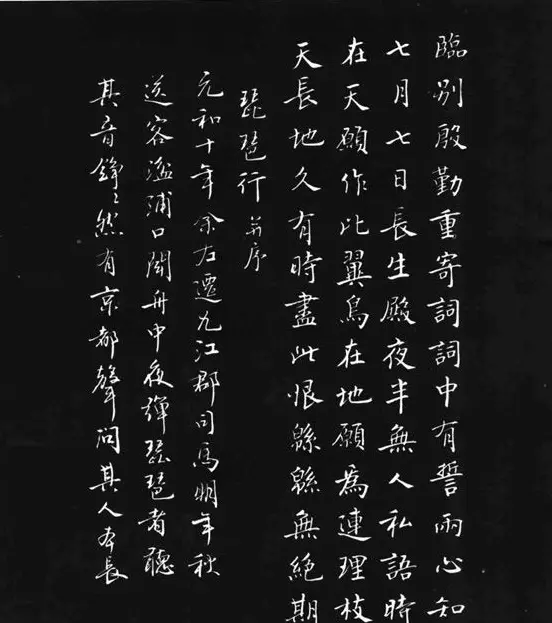 臨別殷勤重寄詞詞中有誓兩心知
七月七日長生殿夜半無人私語時
在天願作比翼鳥在地願為連理枝
天長地久有時盡此恨緜緜無絕期
琵琶行並序
元和十年余左遷九江郡司馬明年秋
送客湓浦口聞舟中夜彈琵琶者聽
其音錚錚然有京都聲問其人本長